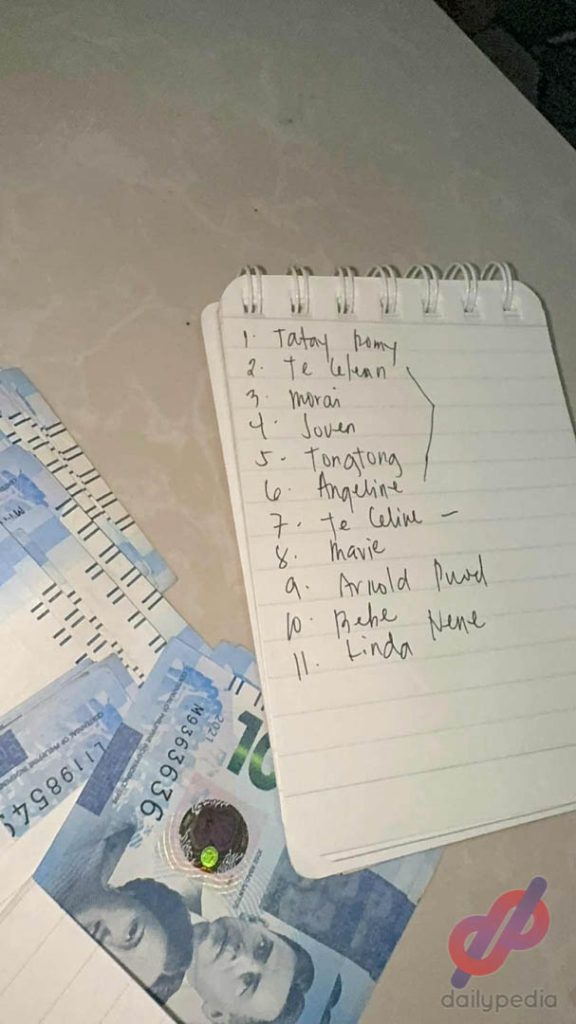 1. Tatay Romy
2. Te Lefann
3. Morai
4. Joven
5. Tongtong
6. Angeline
7. Te Celine -
8. Mavie
9. Arnold
10. Bebe Nene
11. Linda
10
2021
M9363636
L119854
dailypedia